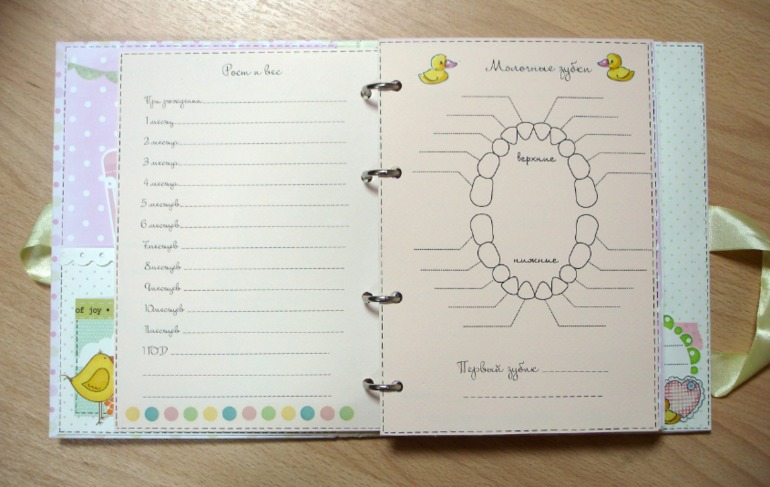 Рост и вес
При рождении
1 месяц
2 месяца
3 месяца
4 месяца
5 месяцев
6 месяцев
7 месяцев
8 месяцев
9 месяцев
10 месяцев
11 месяцев
1 ГОД
of joy •
Молочные зубки
верхние
нижние
Первый зубик